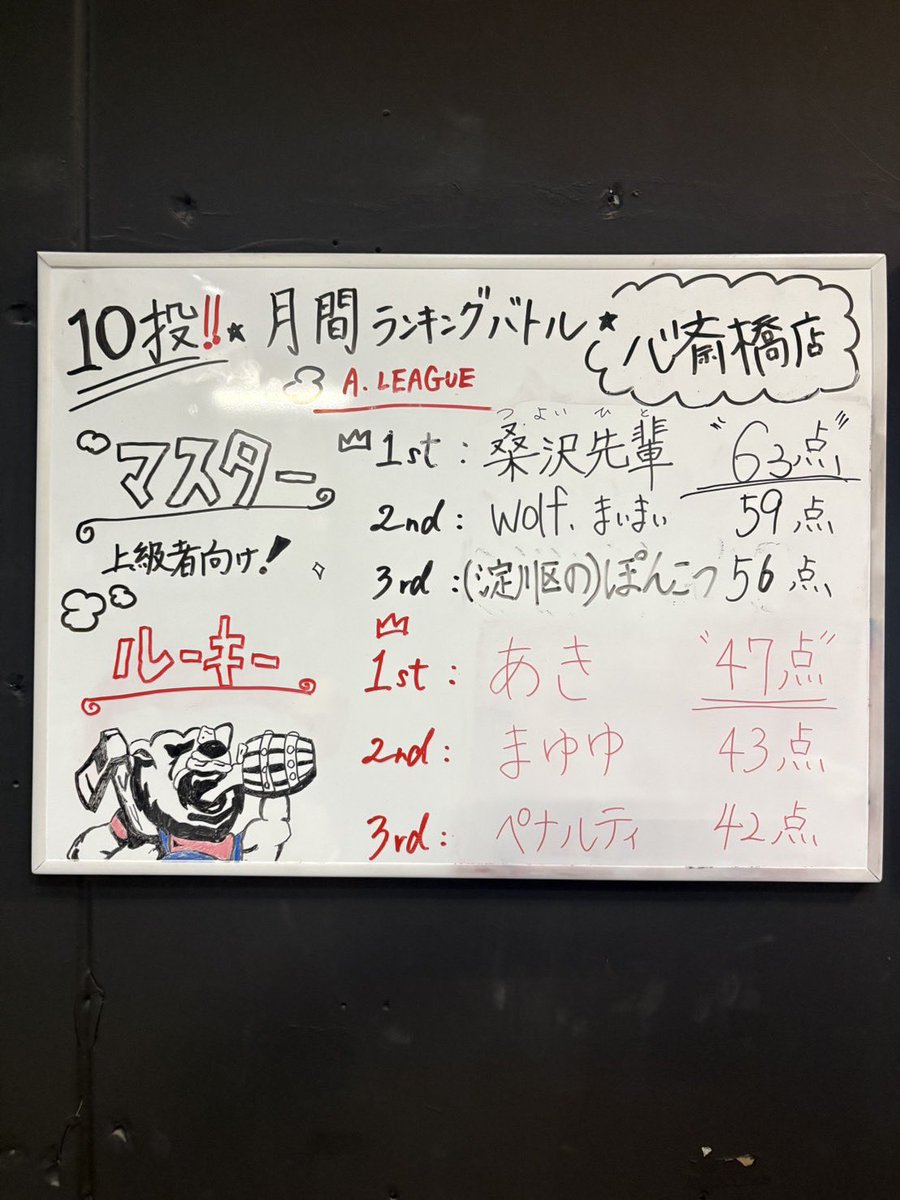 10投!!★月間ランキングバトル★
心斎橋店
A. LEAGUE
マスター
上級者向け!
つよいひと
1st: 桑沢先輩 "63点"
2nd: wolf. まいまい 59点
3rd:(淀川区の)ぽんこつ 56点
ルーキー
1st: あき "47点"
2nd: まゆゆ 43点
3rd: ペナルティ 42点